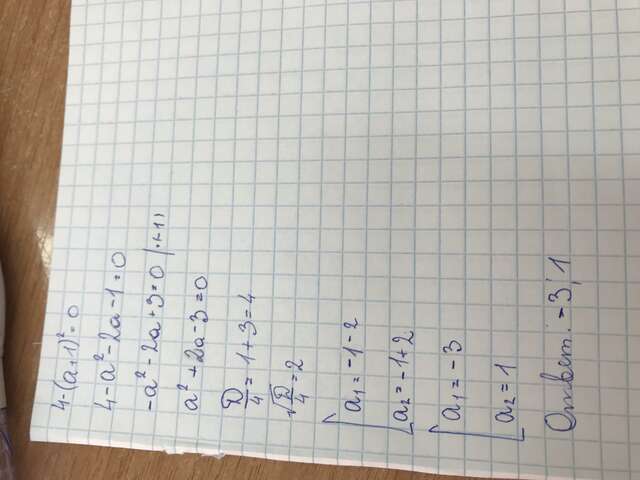 4-(a+1)²=0
4-a²-2a-1=0
-a²-2a+3=0 |·(-1)
a²+2a-3=0
D/4=1+3=4
√D/4=2
[a₁=-1-2
a₂=-1+2
[a₁=-3
a₂=1
Ответ: -3; 1